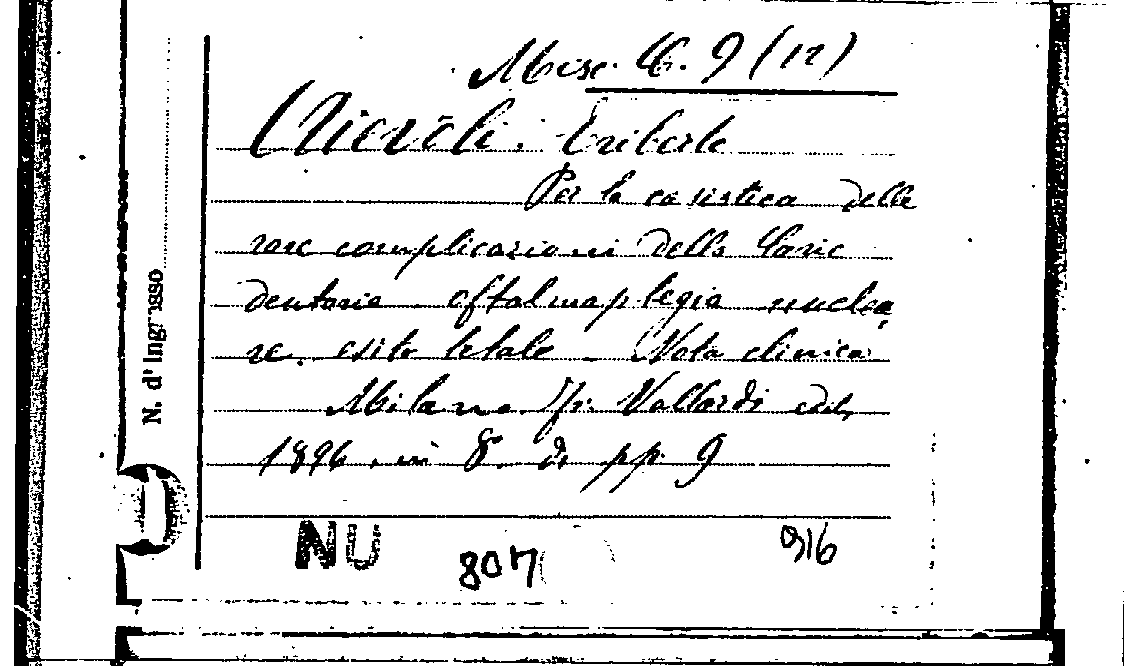 Misc. C. 9 (12)
Eriberto
Per la casistica delle
rare complicazioni della Carie
dentaria oftalmoplegia nuclea
re. esito letale _ Nota clinica
Milano. Fr. Vallardi edit.
1896. in 8º. di pp. 9
N. d'Ingrasso
NU 807 916